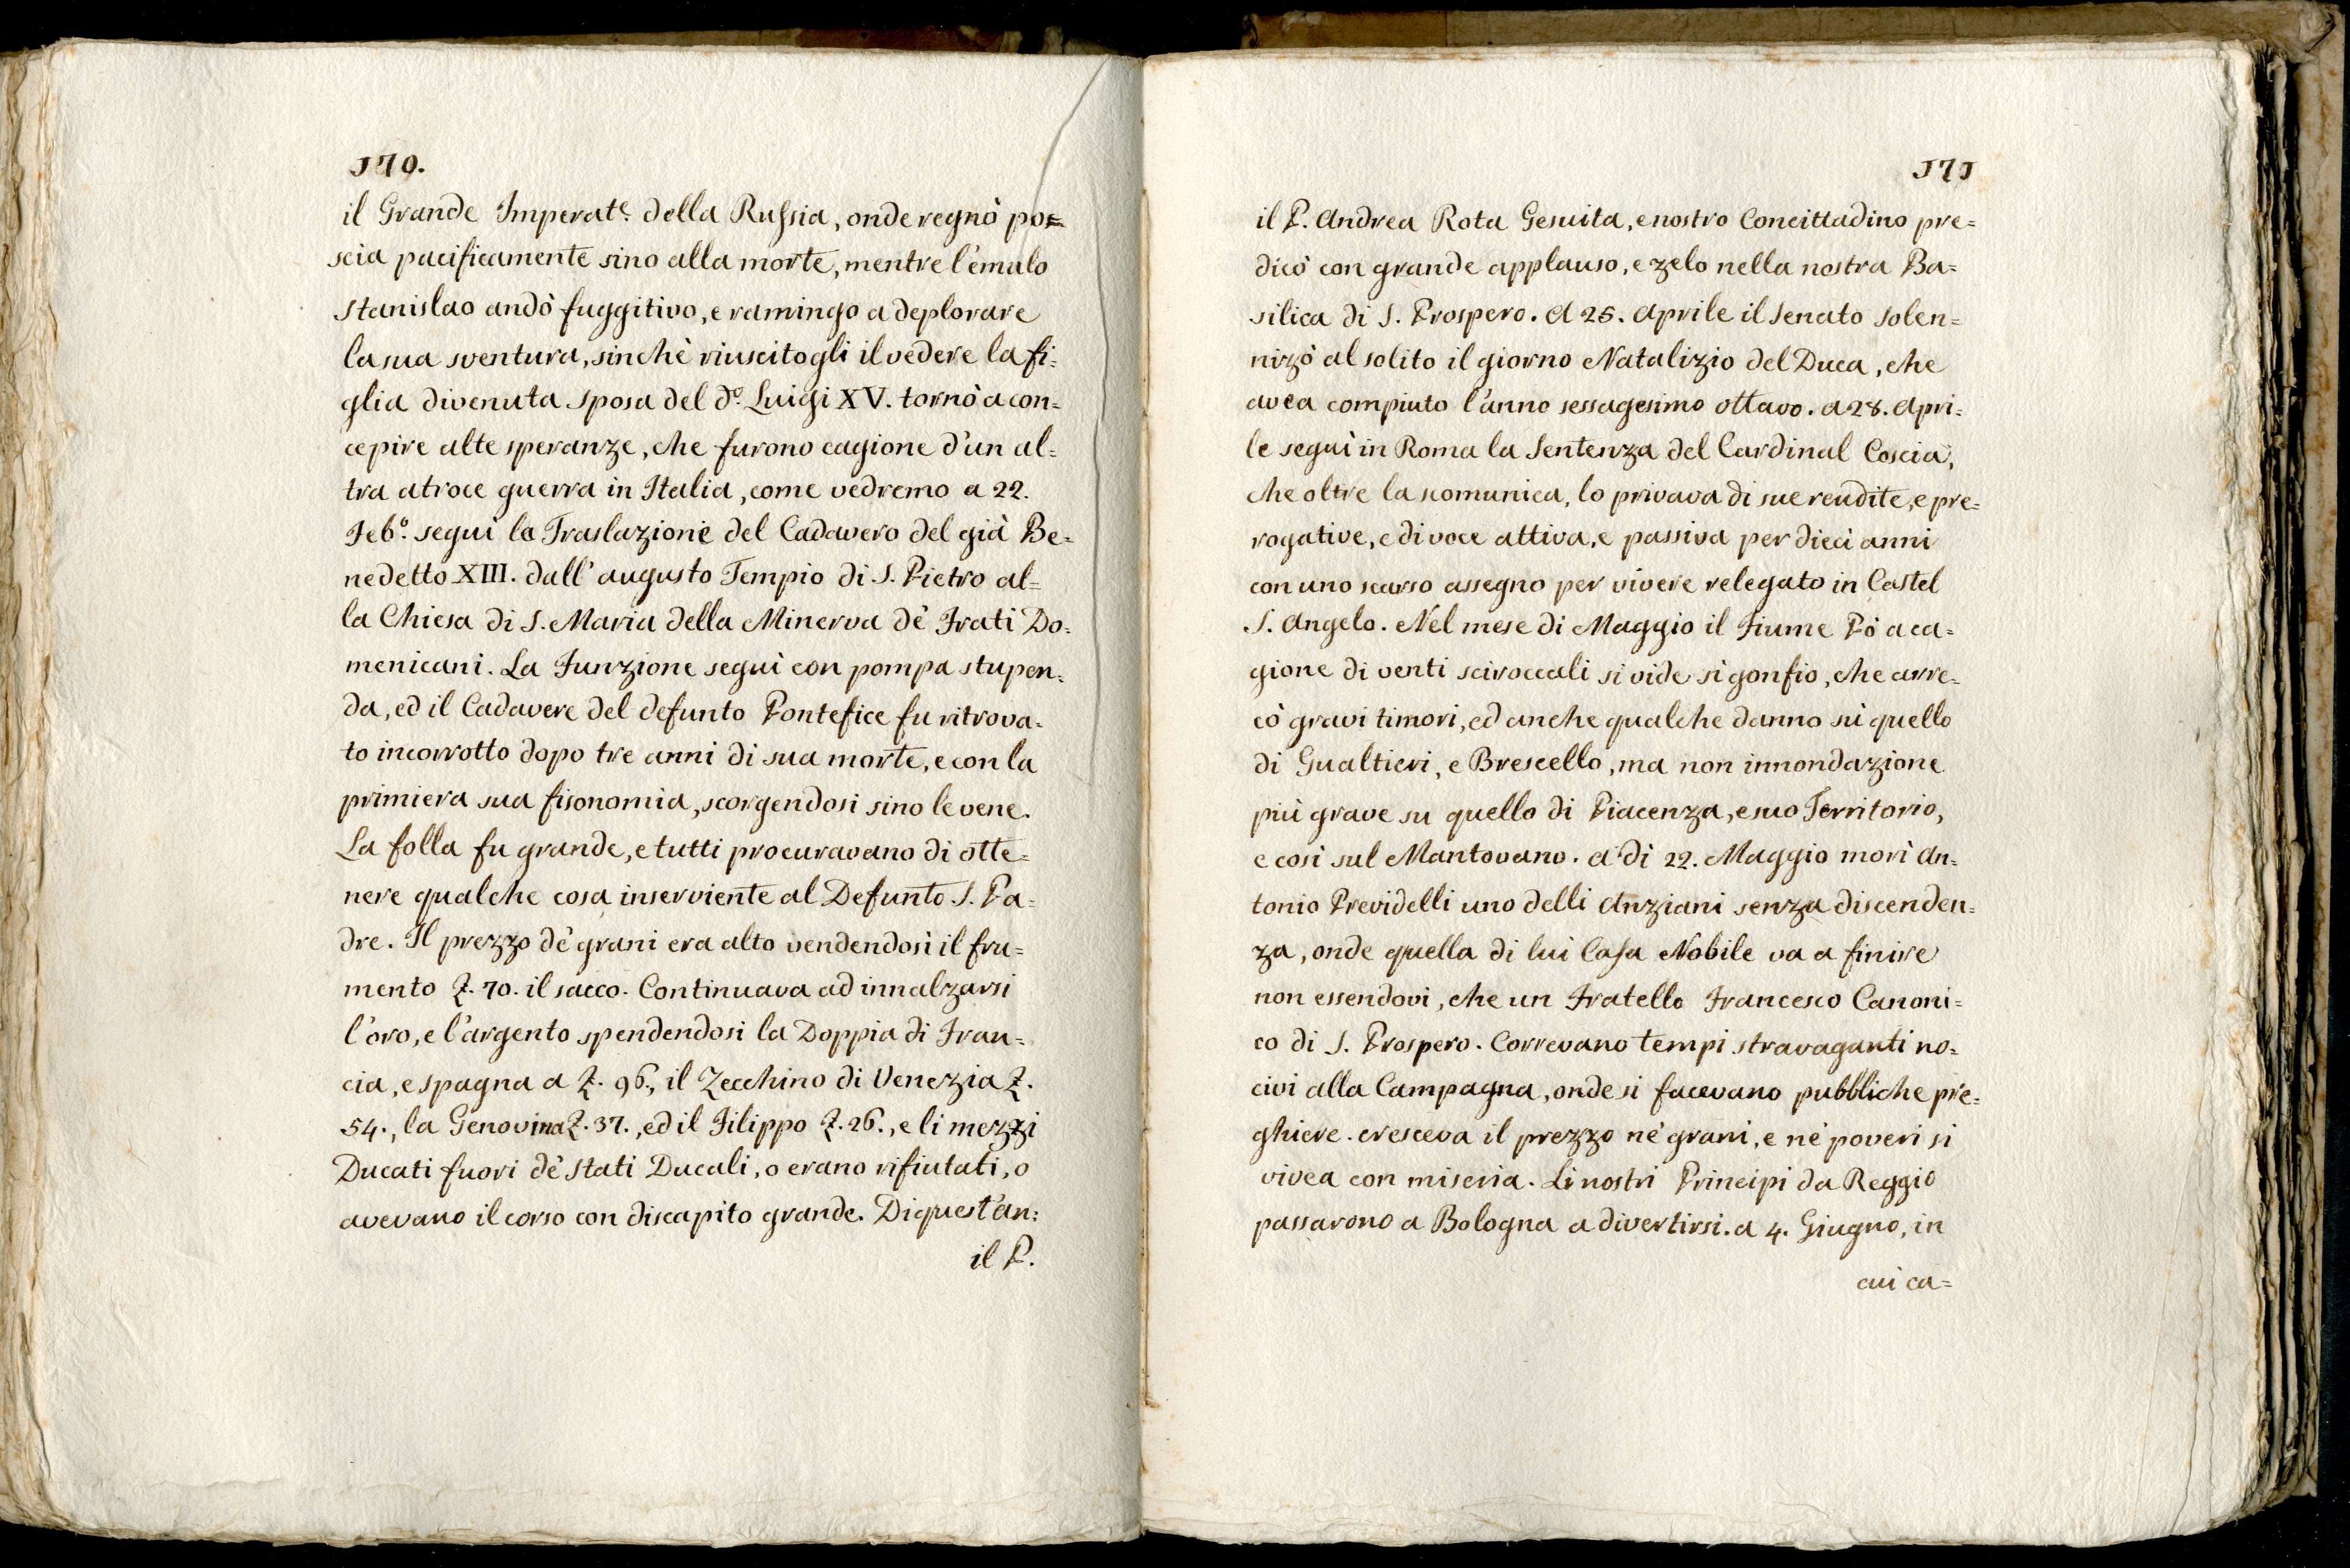 170.
il Grande Imperat.e della Russia, onde regnò po=
scia pacificamente sino alla morte, mentre l'èmulo
Stanislao andò fuggitivo, e ramingo a deplorare
la sua sventura, sinchè riuscitogli il vedere la fi=
glia divenuta sposa del d.o Luigi XV. tornò a con=
cepire alte speranze, che furono cagione d'un al=
tra atroce guerra in Italia, come vedremo a 22.
Feb.o seguì la Traslazione del Cadavero del già Be=
nedetto XIII. dall' augusto Tempio di S. Pietro al=
la Chiesa di S. Maria della Minerva dè Frati Do=
menicani. La Funzione seguì con pompa stupen=
da, ed il Cadavere del defunto Pontefice fu ritrova=
to incorrotto dopo tre anni di sua morte, e con la
primiera sua fisonomia, scorgendosi sino le vene.
La folla fu grande, e tutti procuravano di otte=
nere qualche cosa inserviente al Defunto S. Pa=
dre. Il prezzo dè grani era alto vendendosi il fru=
mento £. 70. il sacco. Continuava ad innalzarsi
l'oro, e l'argento spendendosi la Doppia di Fran=
cia, e spagna a £. 96., il Zecchino di Venezia £.
54., la Genovina £. 37., ed il Filippo £. 26., e li mezzi
Ducati fuori dè stati Ducali, o erano rifiutati, o
avevano il corso con discapito grande. Di quest'an=
il P.
171
il P. Andrea Rota Gesuita, e nostro Concittadino pre=
dicò con grande applauso, e zelo nella nostra Ba=
silica di S. Prospero. A 25. Aprile il Senato solen=
nizò al solito il giorno Natalizio del Duca, che
avea compiuto l'anno sessagesimo ottavo. a 28. Apri=
le seguì in Roma la Sentenza del Cardinal Coscia,
che oltre la scomunica, lo privava di sue rendite, e pre=
rogative, e di voce attiva, e passiva per dieci anni
con uno scarso assegno per vivere relegato in Castel
S. Angelo. Nel mese di Maggio il Fiume Pò a ca=
gione di venti sciroccali si vide sì gonfio, che arre=
cò gravi timori, ed anche qualche danno sù quello
di Gualtieri, e Brescello, ma non innondazione
più grave su quello di Piacenza, e suo Territorio,
e così sul Mantovano. A dì 22. Maggio morì An=
tonio Previdelli uno delli Anziani senza discenden=
za, onde quella di lui Casa Nobile va a finire
non essendovi, che un Fratello Francesco Canoni=
co di S. Prospero. Correvano tempi stravaganti no=
civi alla Campagna, onde si facevano pubbliche pre=
ghiere. cresceva il prezzo nè grani, e nè poveri si
vivea con miseria. Li nostri Principi da Reggio
passarono a Bologna a divertirsi. a 4. Giugno, in
cui ca=